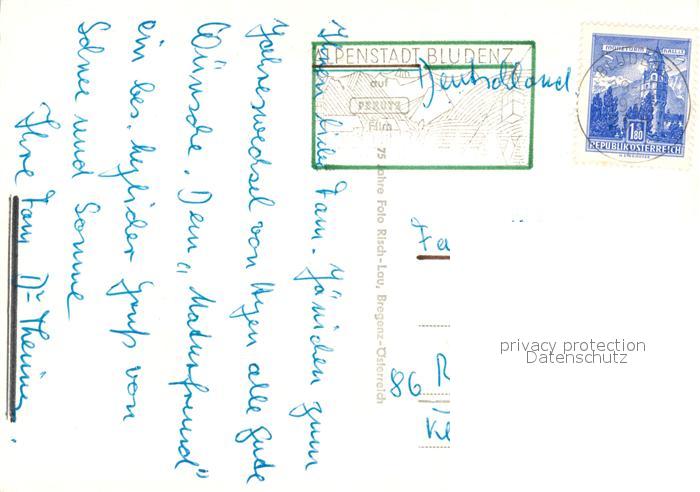 Ihnen, liebe Fam. Jänichen zum
Jahreswechsel von Herzen alle Gute
Wünsche. Dem "Naturfreund"
ein bes. herzlicher Gruß von
Schnee und Sonne
Ihre Fam Dr
ALPENSTADT BLUDENZ
auf
PERUTZ
Film
Deutschland
1.80
REPUBLIK ÖSTERREICH
75 Jahre Foto Risch-Lau, Bregenz-Österreich
Fa
86 R
Kl
privacy protection
Datenschutz